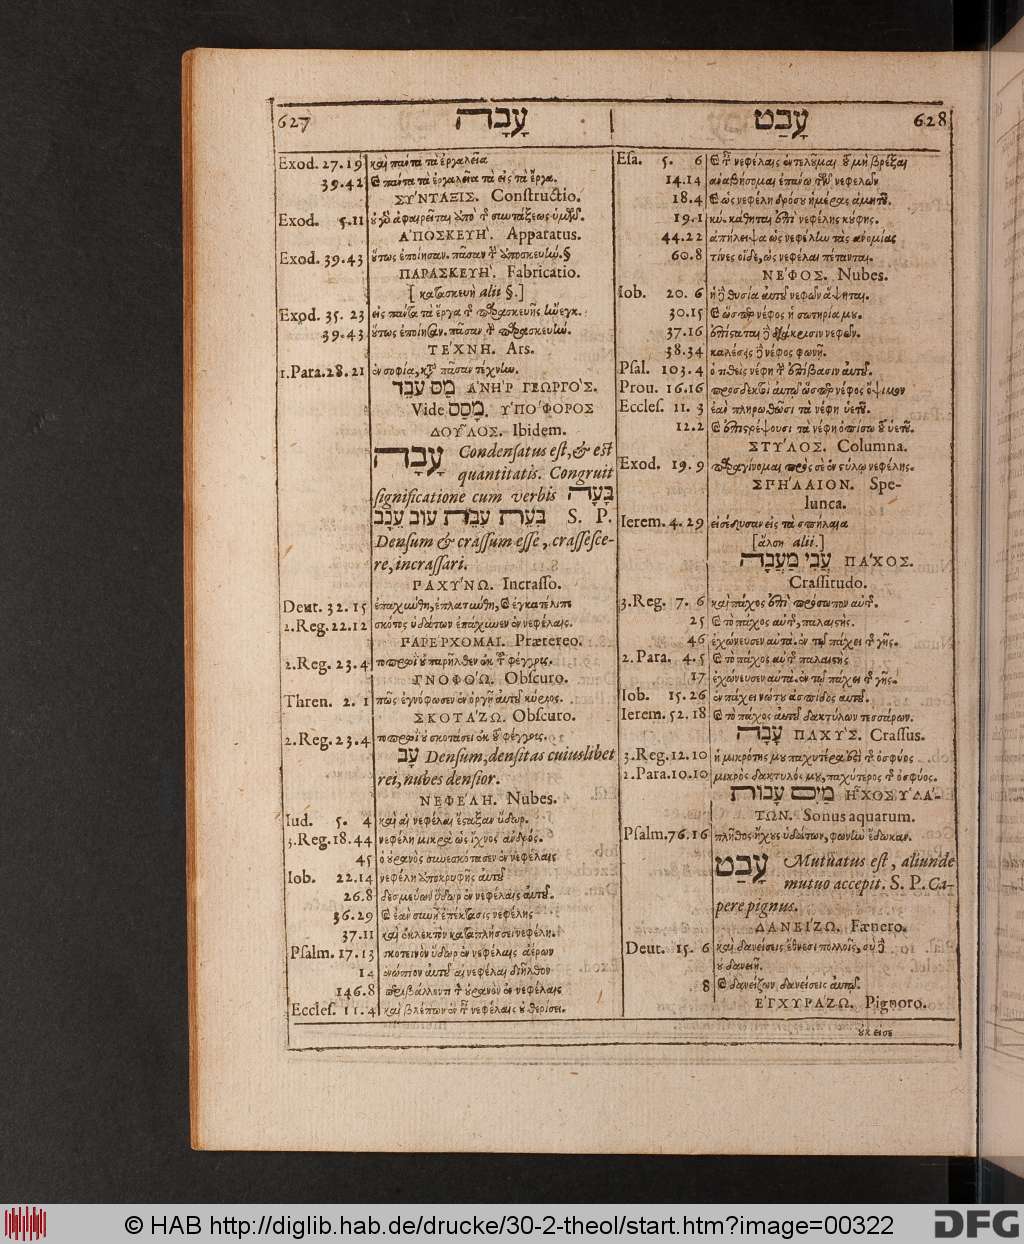 627 עָבָה
עָבַט 628
Exod. 27.19 καὶ πάντα τὰ ἐργαλεῖα
39.42 καὶ πάντα τὰ ἐργαλεῖα τὰ εἰς τὰ ἔργα.
ΣΎΝΤΑΞΙΣ. Constructio.
Exod. 5.11 ἀφαιρεῖται ἀπὸ τῆς συντάξεως ὑμῶν.
ἈΠΟΣΚΕΥΉ. Apparatus.
Exod. 39.43 οὕτως ἐποίησαν. πᾶσαν τὴν ἀποσκευὴν.§
ΠΑΡΑΣΚΕΥΉ. Fabricatio.
[κατασκευὴ alii §.]
Exod. 35. 23 εἰς πάντα τὰ ἔργα τῆς παρασκευῆς
39.43 οὕτως ἐποίησαν. πᾶσαν τὴν παρασκευὴν.
ΤΈΧΝΗ. Ars.
1.Para.28.21 ἐν σοφίᾳ, κατὰ πᾶσαν τέχνην.
מַס עֹבֵד ἈΝῊΡ ΓΕΩΡΓῸΣ.
Vide מָסַס. ὙΠΌΦΟΡΟΣ
ΔΟΥ͂ΛΟΣ. Ibidem.
עָבָה Condensatus est, & est
quantitatis. Congruit
significatione cum verbis בָּעָה
S. P.
Densum & crassum esse, crassesce-
re, incrassari.
ΠΑΧΎΝΩ. Incrasso.
Deut. 32. 15 ἐπαχύνθη, ἐπλατύνθη, καὶ ἐγκατέλιπε
2.Reg.22.12 σκότος ὑδάτων ἐπάχυνεν ἐν νεφέλαις.
ΠΑΡΈΡΧΟΜΑΙ. Prætereo.
2.Reg. 23.4 τοπρωῒ οὐ παρῆλθεν ἐκ τοῦ φέγγους.
ΓΝΟΦΌΩ. Obscuro.
Thren. 2. 1 πῶς ἐγνόφωσεν ἐν ὀργῇ αὐτοῦ κύριος.
ΣΚΟΤΆΖΩ. Obscuro.
2.Reg.23.4 τοπρωῒ οὐ σκοτάσει ἐκ τοῦ φέγγους.
עָב Densum, densitas cuiuslibet
rei, nubes densior.
ΝΕΦΈΛΗ. Nubes.
Iud. 5. 4 καὶ αἱ νεφέλαι ἔσταξαν ὕδωρ.
3.Reg.18.44 νεφέλη μικρὰ ὡς ἴχνος ἀνδρός.
45 ὁ οὐρανὸς συνεσκότασεν ἐν νεφέλαις
Iob. 22.14 νεφέλη ἀποκρυφῆς αὐτοῦ
26.8 δεσμεύων ὕδωρ ἐν νεφέλαις αὐτοῦ.
36.29 καὶ ἐὰν συνῇ ἐπέκτασις νεφέλης
37.11 καὶ ἐκλεκτὸν καταπλήσσει νεφέλη.
Psalm. 17.13 σκοτεινὸν ὕδωρ ἐν νεφέλαις ἀέρων
14 ἐνώπιον αὐτοῦ αἱ νεφέλαι διῆλθον
146.8 περιβάλλοντι τὸν οὐρανὸν ἐν νεφέλαις
Eccles. 11.4 καὶ βλέπων ἐν ταῖς νεφέλαις οὐ θερίσει.
Esa. 5. 6 καὶ ταῖς νεφέλαις ἐντελοῦμαι τοῦ μὴ βρέξαι
14.14 ἀναβήσομαι ἐπάνω τῶν νεφελῶν
18.4 καὶ ὡς νεφέλη δρόσου ἡμέρας ἀμήτου.
19.1 κύ. κάθηται ἐπὶ νεφέλης κούφης.
44.22 ἀπήλειψα ὡς νεφέλην τὰς ἀνομίας
60.8 τίνες οἵδε, ὡς νεφέλαι πέτανται.
ΝΈΦΟΣ. Nubes.
Iob. 20. 6 ἡ δὲ θυσία αὐτοῦ νεφῶν ἅψηται.
30.15 καὶ ὥσπερ νέφος ἡ σωτηρία μου.
37.16 ἐπίσταται δὲ διάκρισιν νεφῶν.
38.34 καλέσεις δὲ νέφος φωνῇ.
Psal. 103.4 ὁ τιθεὶς νέφη τὴν ἐπίβασιν αὐτοῦ.
Prou. 16.16 προσδεκτοὶ αὐτῷ ὥσπερ νέφος ὄψιμον
Eccles. 11. 3 ἐὰν πληρωθῶσι τὰ νέφη ὑετοῦ.
12.2 καὶ ἐπιστρέψουσι τὰ νέφη ὀπίσω τοῦ ὑετοῦ.
ΣΤΥ͂ΛΟΣ. Columna.
Exod. 19. 9 παραγίνομαι πρὸς σὲ ἐν στύλῳ νεφέλης.
ΣΠΉΛΑΙΟΝ. Spe-
lunca.
Ierem. 4. 29 εἰσέδυσαν εἰς τὰ σπήλαια
[ἄλση alii.]
עֲבִי מַעֲבֶה ΠΆΧΟΣ.
Crassitudo.
3.Reg. 7. 6 καὶ πάχος ἐπὶ πρόσωπον αὐτῆς.
25 καὶ τὸ πάχος αὐτοῦ, παλαιστής.
46 ἐχώνευσεν αὐτὰ. ἐν τῷ πάχει τῆς γῆς.
2. Para. 4.5 καὶ τὸ πάχος αὐτῆς παλαιστής
17 ἐχώνευσεν αὐτὰ. ἐν τῷ πάχει τῆς γῆς.
Iob. 15.26 ἐν πάχει νώτου ἀσπίδος αὐτοῦ.
Ierem. 52.18 καὶ τὸ πάχος αὐτοῦ δακτύλων τεσσάρων.
עָבָה ΠΑΧΎΣ. Crassus.
3.Reg.12.10 ἡ μικρότης μου παχυτέρα ἐπὶ τῆς ὀσφύος
2.Para.10.10 μικρὸς δακτυλός μου, παχύτερος τῆς ὀσφύος.
מַיִם עָבוֹת ἮΧΟΣ ὙΔΆ-
ΤΩΝ. Sonus aquarum.
Psalm.76.16 πλῆθος ἤχους ὑδάτων, φωνὴν ἔδωκαν.
עָבַט Mutuatus est, aliunde
mutuo accepit. S. P. Ca-
pere pignus.
ΔΑΝΕΊΖΩ. Fænero.
Deut. 15. 6 καὶ δανείσεις ἔθνεσι πολλοῖς, σὺ δὲ
οὐ δανειῇ.
8 καὶ δανείζων δανείσεις αὐτῷ.
ἘΓΧΥΡΆΖΩ. Pignoro.
οὐκ εἰσε
© HAB http://diglib.hab.de/drucke/30-2-theol/start.htm?image=00322
DFG